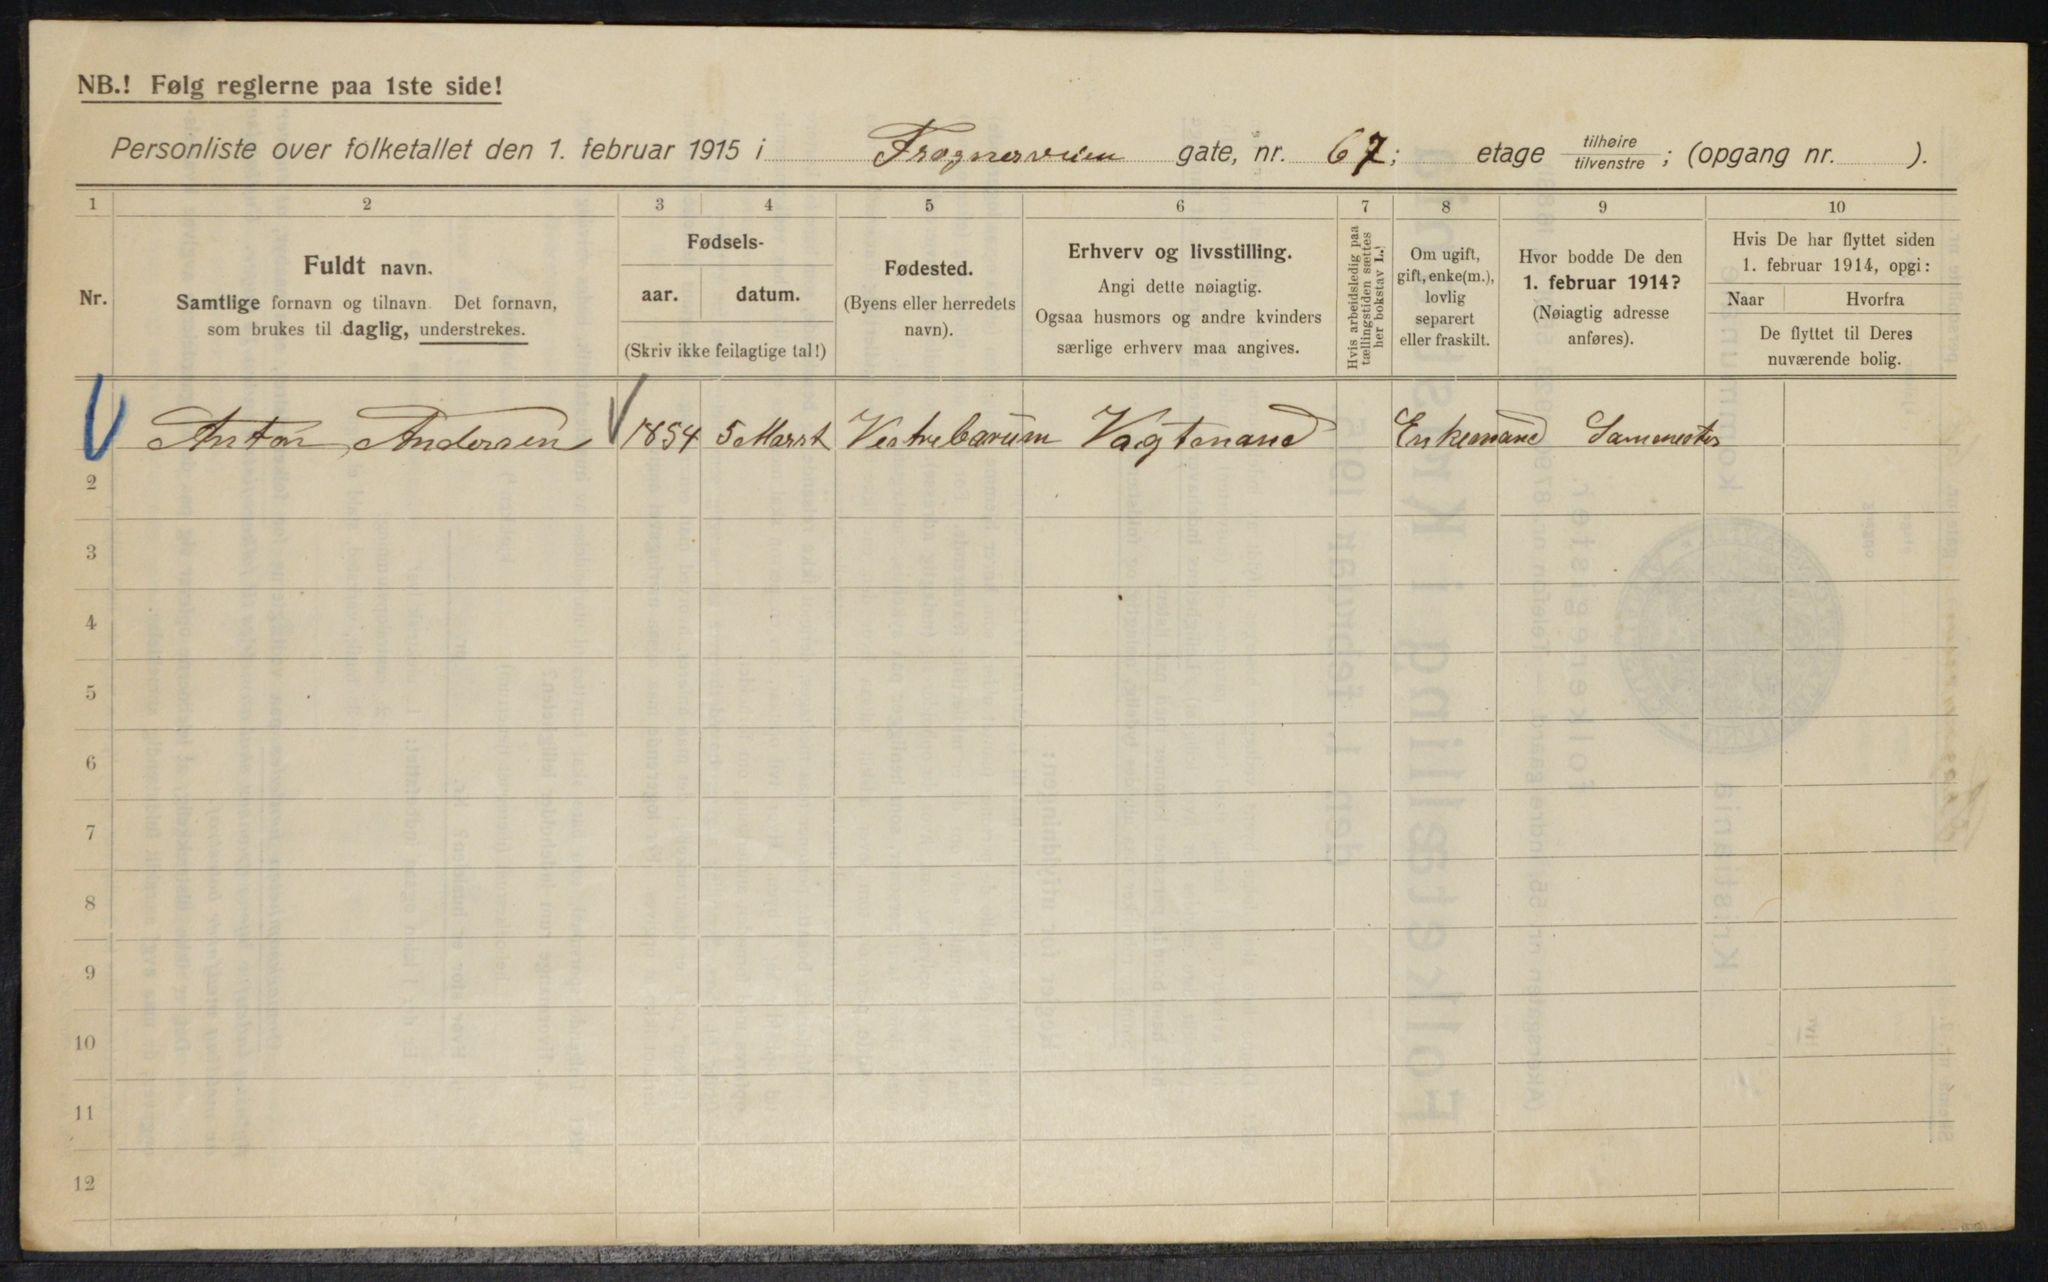 NB.! Følg reglerne paa 1ste side!
Personliste over folketallet den 1. februar 1915 i Frognerveien gate, nr. 67; etage tilhøire tilvenstre; (opgang nr. ).
1 2 3 4 5 6 7 8 9 10
Nr.
Fuldt navn.
Samtlige fornavn og tilnavn. Det fornavn,
som brukes til daglig, understrekes.
Fødsels-
aar. datum.
(Skriv ikke feilagtige tal!)
Fødested.
(Byens eller herredets
navn).
Erhverv og livsstilling.
Angi dette nøiagtig.
Ogsaa husmors og andre kvinders
særlige erhverv maa angives.
Hvis arbeidsledig paa
tællingstiden sættes
her bokstav L.
Om ugift,
gift, enke(m.),
lovlig
separert
eller fraskilt.
Hvor bodde De den
1. februar 1914?
(Nøiagtig adresse
anføres).
Hvis De har flyttet siden
1. februar 1914, opgi:
Naar Hvorfra
De flyttet til Deres
nuværende bolig.
Anton Andersen 1854 5 Marst Vestrebarum Vagtmand Enkemand Sammested
2
3
4
5
6
7
8
9
10
11
12